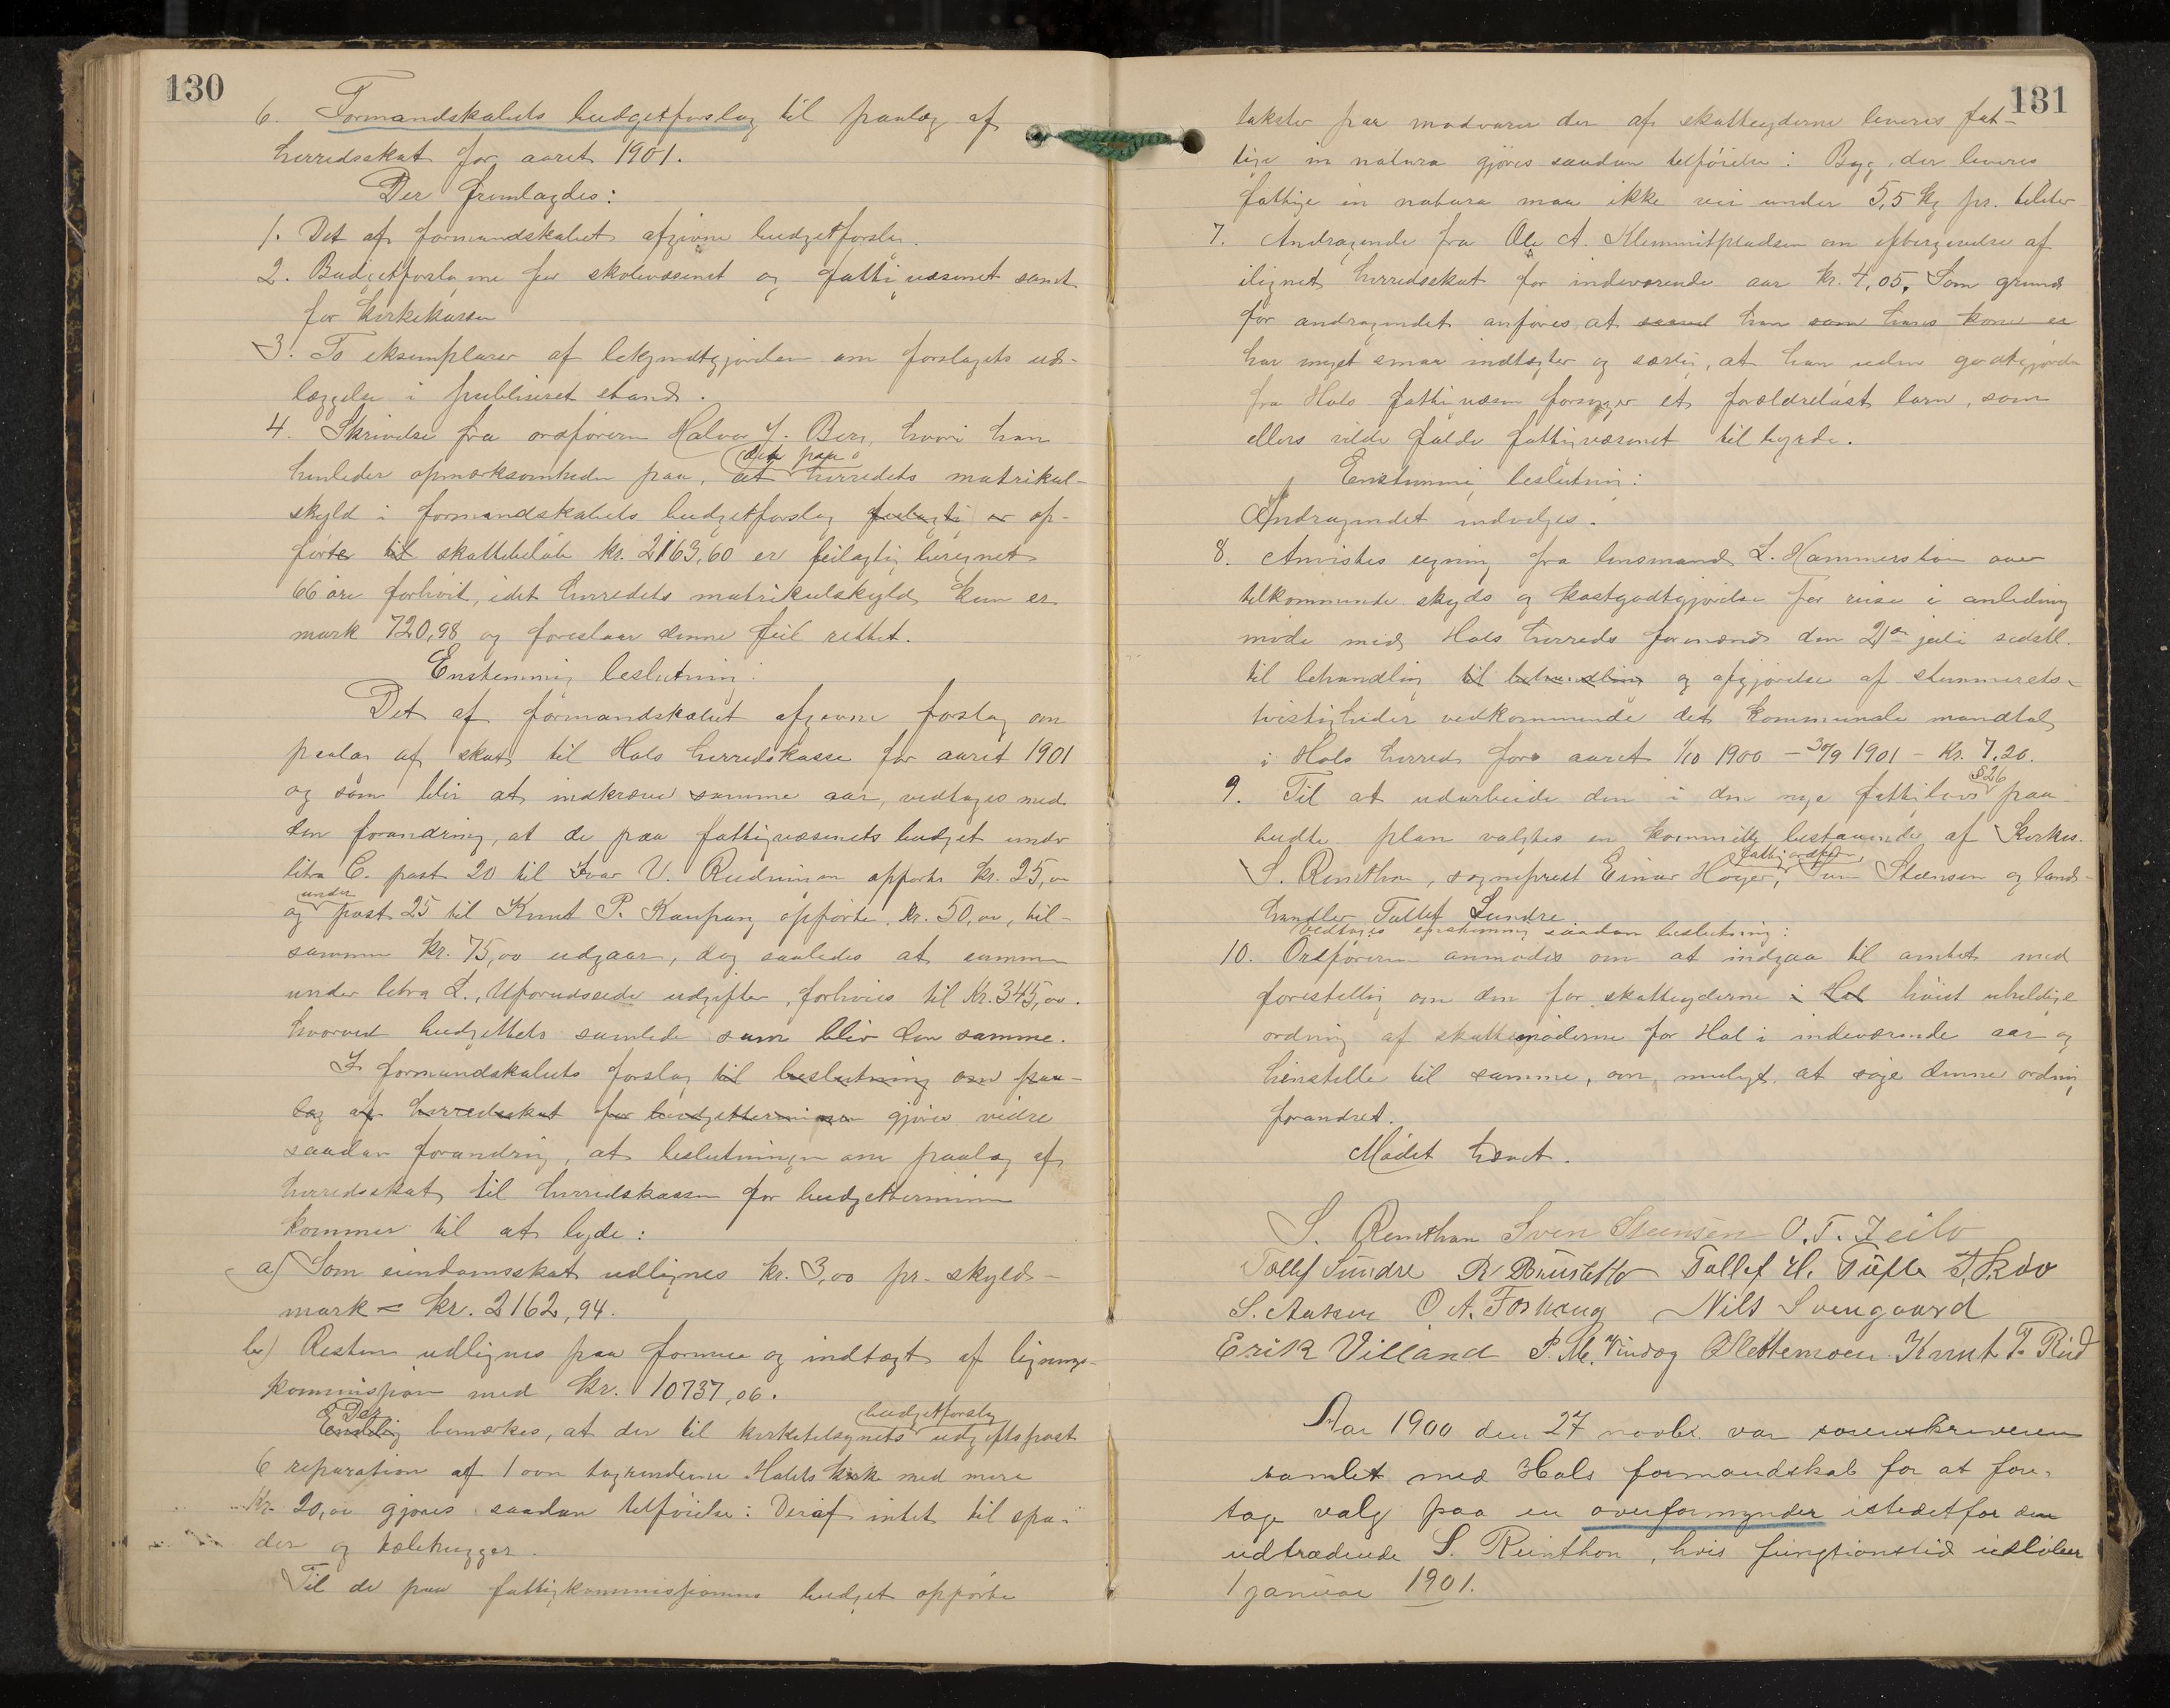 130
6. Formandskabets budgetforslag til paalæg af
herredsskat for aaret 1901.
Der fremlagdes:
1. Det af formandskabet afgivne budgetforslag.
2. Budgetforslagene for skolevæsenet og fattigvæsenet samt
for kirkekassen
3. To eksemplarer af bekjendtgjørelsen om forslagets ud-
læggelse i publiseret stand.
4. Skrivelse fra ordføreren Halvor J. Berg, hvori han
det paa
henleder opmærksomheden paa, at herredets matrikul-
skyld i formandskabets budgetforslag feilagtig er op-
førte til skattebeløb kr. 2163,60 er feilagtig beregnet
66 øre forhøit, idet herredets matrikulskyld kun er
mark 720,98 og foreslaar denne feil rettet.
Enstemmig beslutning:
Det af formandskabet afgivne forslag om
paalæg af skat til Hols herredskasse for aaret 1901
og som blir at indkræve samme aar, vedtages med
den forandring, at de paa fattigvæsenets budget under
litra C. post 20 til Ivar V. Rudningen opførte kr. 25,00
under
og post 25 til Knut P. Kaupang opførte kr. 50,00, til-
sammen kr. 75,00 udgaar, dog saaledes at summen
under litra L., Uforudseede udgifter, forhøies til Kr. 345,00.
hvorved budgettets samlede sum blir den samme.
I formandskabets forslag til beslutning om paa-
læg af herredsskat for budgetterminen gjøres videre
saadan forandring, at beslutningen om paalæg af
herredsskat til herredskassen for budgetterminen
kommer til at lyde:
a) Som eiendomsskat udlignes kr. 3,00 pr. skyld-
mark = kr. 2162,94.
b) Resten udlignes paa formue og indtægt af lignings-
kommissjonen med kr. 10737,06.
Det budgetforslag
Endelig bemærkes, at der til kirketilsynets udgiftspost
6 reparation af 1 ovn tagrenderne Hols kirke med mere
Kr. 20,00 gjøres saadan tilføielse: Deraf intet til spa-
der og
Til de paa fattigkommissjonens budget opførte
131
takster paa madvarer der af skatteyderne leveres fat-
tige in natura gjøres saadan tilføielse: Byg, der leveres
fattige in natura maa ikke veie under 5,5 kg pr. deliter
7. Andragende fra Ole A. Klemmitpladsen om eftergivelse af
ilignet herredsskat for indeværende aar kr. 4,05. Som grund
for andragendet anføres, at saavel han som hans kone er
har meget smaa indtægter og særlig, at han uden godtgjørelse
fra Hols fattigvæsen forsørger et forældreløst barn, som
ellers vilde falde fattigvæsenet til byrde.
Enstemmig beslutning:
Andragendet indvilges.
8. Anvistes regning fra lensmand L. Hammersbøn over
tilkommende skyds og kostgodtgjørelse for reise i anledning
møde med Hols herreds formænd den 21de juli sidstl.
til behandling til behandling og afgjørelse af stemmerets-
tvistigheder vedkommende det kommunale mandtal
i Hols herred for aaret 1/10 1900 – 30/9 1901 – Kr. 7,20.
§ 26
9. Til at udarbeide den i den nye fattiglovs paa-
budte plan valgtes en kommitte bestaaende af Kirkes.
fattigordfører,
S. Reinthon, sogneprest Einar Høyer, Sven Steensen og land-
handler Tollef Sundre.
vedtoges enstemmig saadan beslutning:
10. Ordføreren anmodes om at indgaa til amtet med
forestilling om den for skatteyderne i Hol høist uheldige
ordning af skattemøderne for Hol i indeværende aar og
henstille til samme, om muligt at søge denne ordning
forandret.
Mødet hævet.
S. Reinthon Sven Steensen O. T. Zeilo
Tollef Sundre R Brusletto Tollef H. Tufte T. Skøo
S. Aasen O. A. Foshaug Nils Svengaard
Erik Villand P. M. Vindøg O Slettemoen Knut T. Rud
Aar 1900 den 27 novbr. var sorenskriveren
samlet med Hols formandskab for at fore-
tage valg paa en overformynder istedetfor den
udtrædende S. Reinthon, hvis fungtionstid udløber
1 januar 1901.